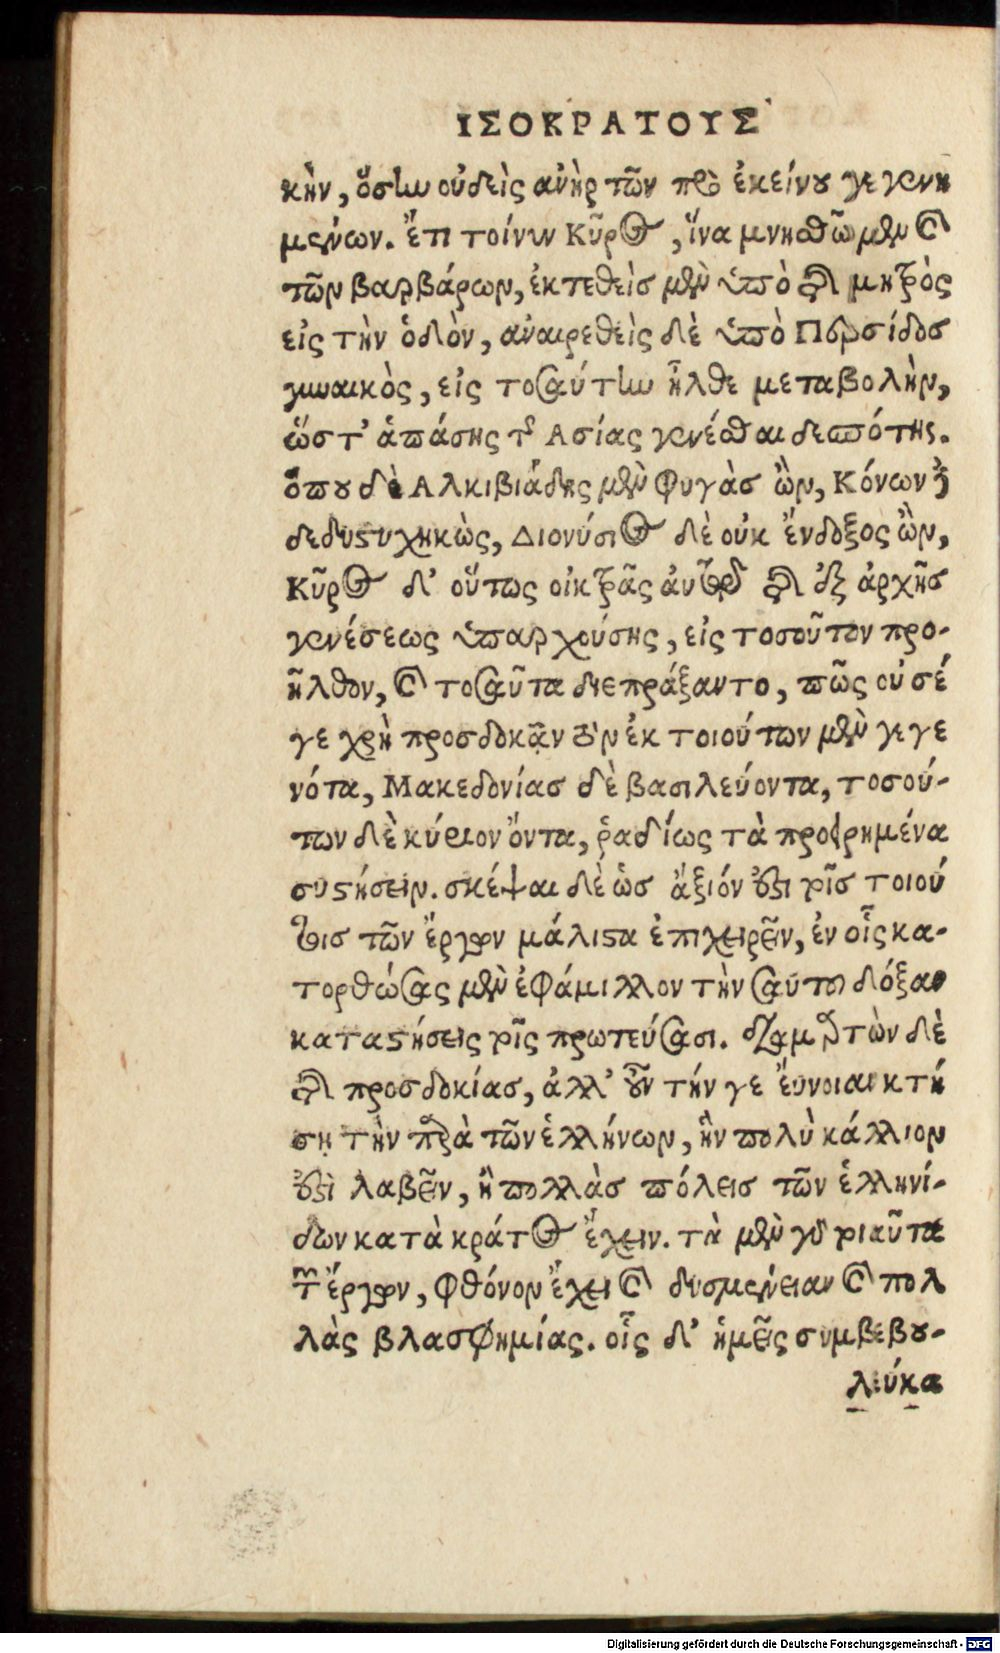 ΙΣΟΚΡΑΤΟΥΣ
κὴν, ὅσην οὐδεὶς ἀνὴρ τῶν πρὸ ἐκείνου γεγενη
μένων. ἔτι τοίνυν Κῦρος, ἵνα μνησθῶμεν καὶ
τῶν βαρβάρων, ἐκτεθεὶς μὲν ὑπὸ τῆς μητρὸς
εἰς τὴν ὁδὸν, ἀναιρεθεὶς δὲ ὑπὸ Περσίδος
γυναικὸς, εἰς τοσαύτην ἦλθε μεταβολὴν,
ὥστ' ἁπάσης τῆς Ασίας γενέσθαι δεσπότης.
ὅπου δὲ Αλκιβιάδης μὲν φυγὰς ὢν, Κόνων δὲ
δεδυστυχηκὼς, Διονύσιος δὲ οὐκ ἔνδοξος ὢν,
Κῦρος δ' οὕτως οἰκτρᾶς αὐτοῦ τῆς ἐξ ἀρχῆς
γενέσεως ὑπαρχούσης, εἰς τοσοῦτον προ-
ῆλθον, καὶ τοσαῦτα διεπράξαντο, πῶς οὐ σέ
γε χρὴ προσδοκᾷν τὸν ἐκ τοιούτων μὲν γεγε
νότα, Μακεδονίας δὲ βασιλεύοντα, τοσού-
των δὲ κύριον ὄντα, ῥαδίως τὰ προειρημένα
συστήσειν. σκέψαι δὲ ὡς ἄξιόν ἐστι τοῖς τοιού
τοις τῶν ἔργων μάλιστα ἐπιχειρεῖν, ἐν οἷς κα-
τορθώσας μὲν ἐφάμιλλον τὴν σαυτοῦ δόξαν
καταστήσεις τοῖς πρωτεύσασι. διαμαρτὼν δὲ
τῆς προσδοκίας, ἀλλ' οὖν τήν γε εὔνοιαν κτή
σῃ τὴν παρὰ τῶν ἑλλήνων, ἣν πολὺ κάλλιον
ἐστὶ λαβεῖν, ἢ πολλὰς πόλεις τῶν ἑλληνί-
δων κατὰ κράτος ἔχειν. τὰ μὲν γὰρ τοιαῦτα
τῶν ἔργων, φθόνον ἔχει καὶ δυσμένειαν καὶ πολ
λὰς βλασφημίας. οἷς δ' ἡμεῖς συμβεβου-
λεύκα
Digitalisierung gefördert durch die Deutsche Forschungsgemeinschaft - DFG